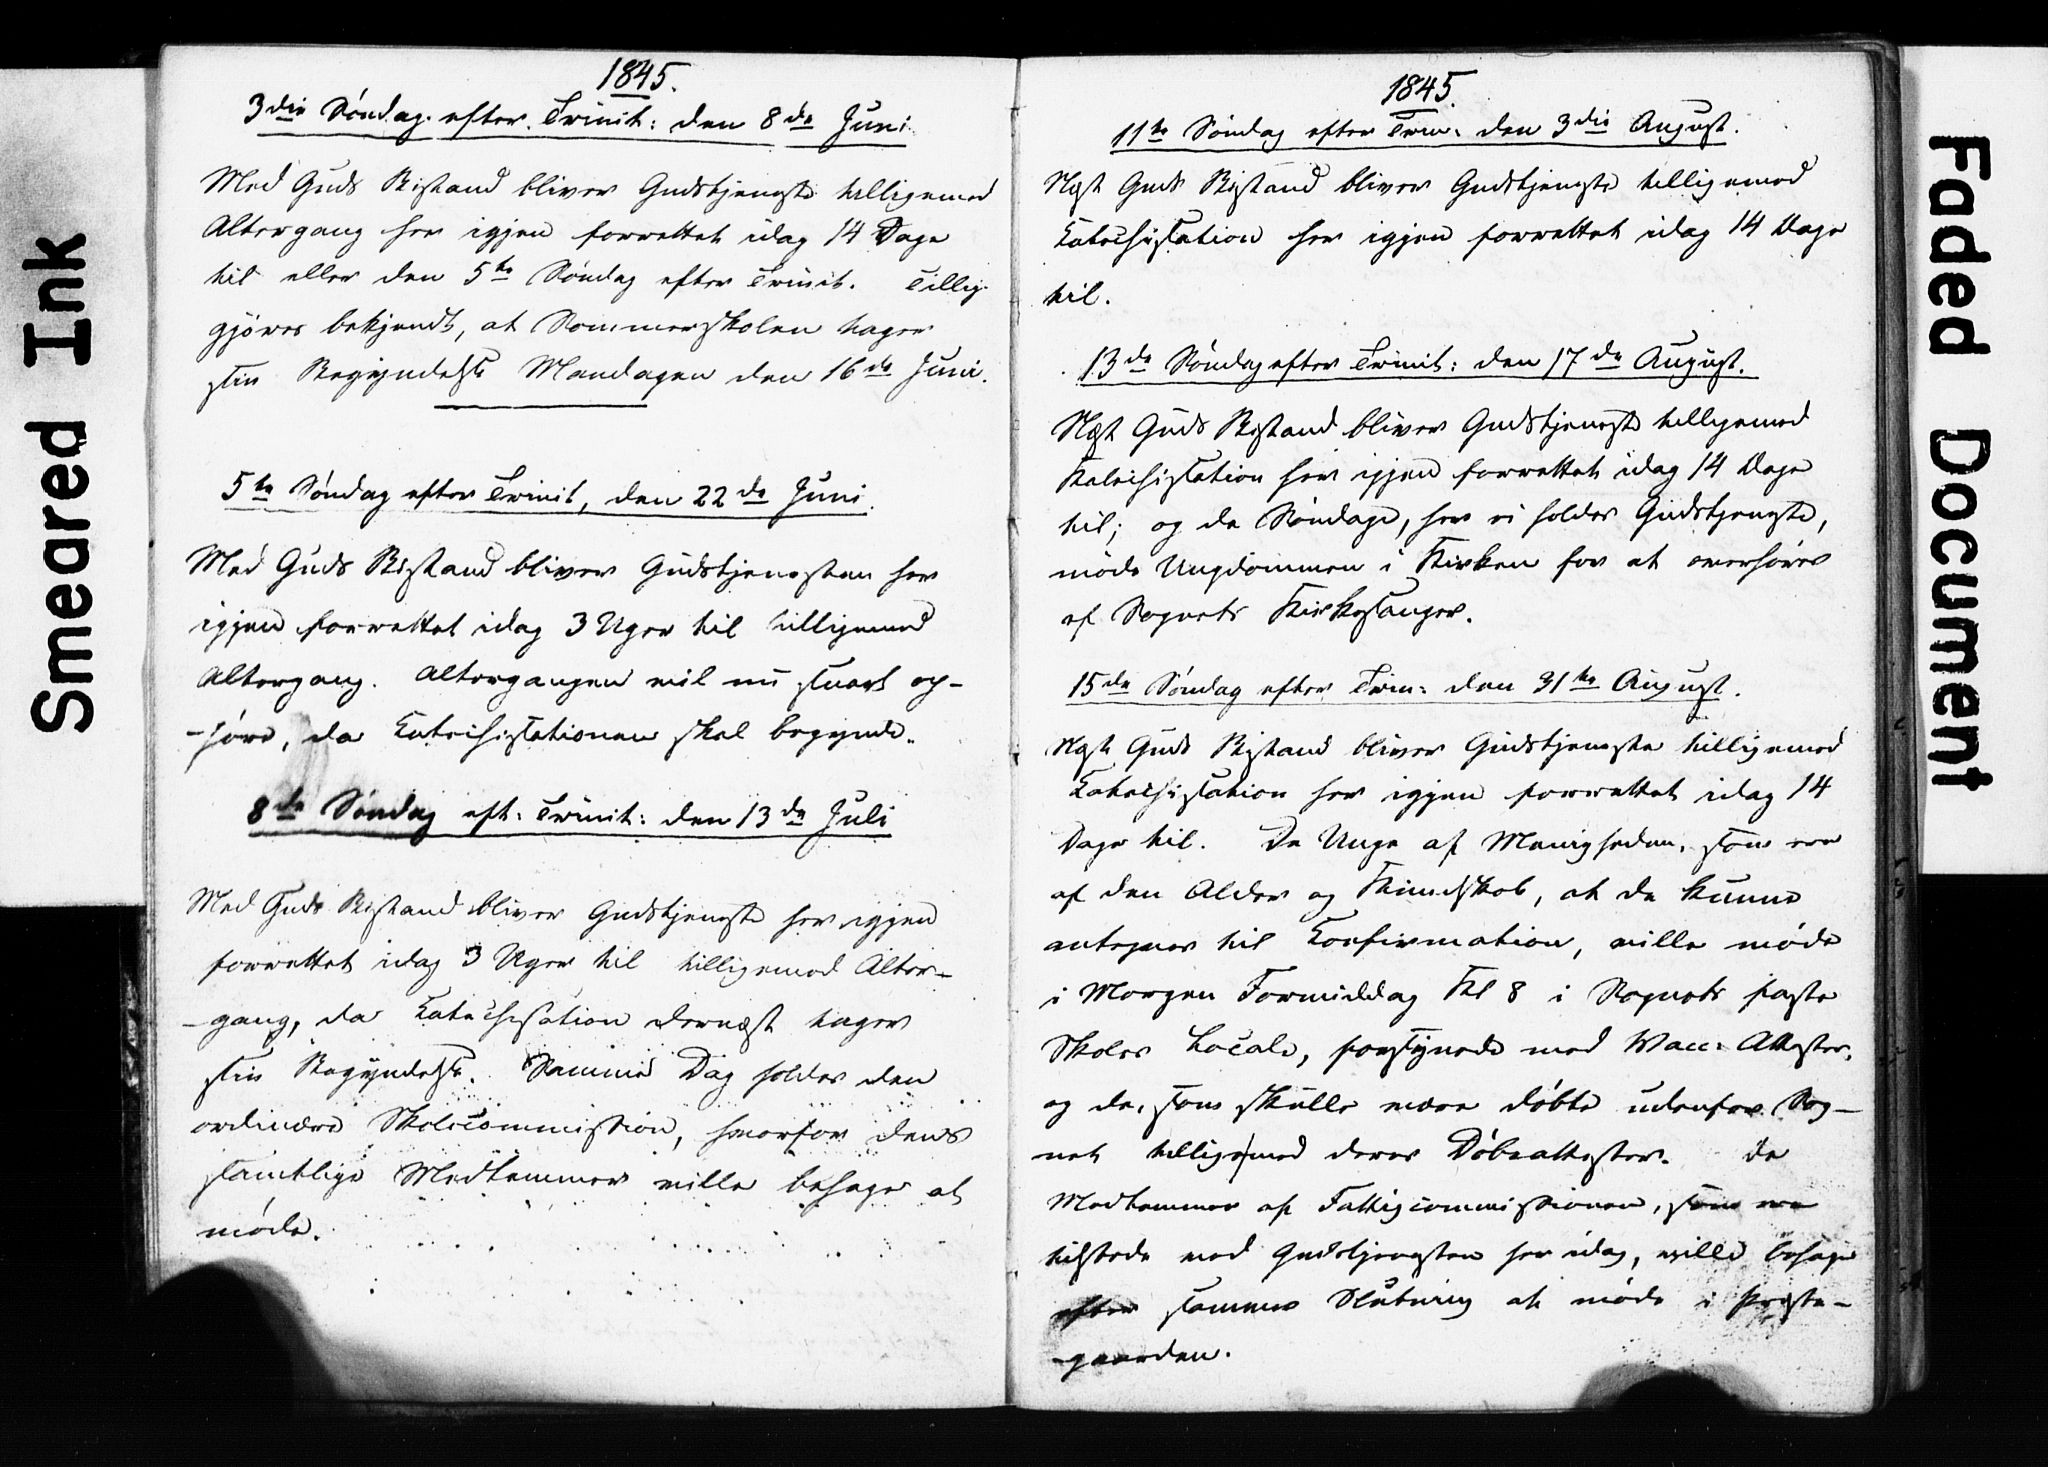 Smeared Ink
1845.
3die Søndag efter Trinit: den 8de Juni
Med Guds Bistand bliver Gudstjeneste tilligemed
Altergang her igjen forrettet idag 14 Dage
til eller den 5te Søndag efter Trinit. Tillig
gjöres bekjendt, at Sommerskolen tager
sin Begyndelse Mandagen den 16de Juni.
5te Søndag efter Trinit, den 22de Juni.
Med Guds Bistand bliver Gudstjenesten her
igjen forrettet idag 3 Uger til tilligemed
Altergang. Altergangen vil nu snart op-
-høre, da Catechisationen skal begynde.
8de Søndag eft: Trinit: den 13de Juli
Med Guds Bistand bliver Gudstjeneste her igjen
forrettet idag 3 Uger til tilligemed Alter-
-gang, da Catechisation dernæst tager
sin Begyndelse. Samme Dag holder den
ordinære Skolecommission, hvorfor dens
samtlige Medlemmer ville behage at
møde.
1845.
11te Søndag efter Trin: den 3die August.
Næst Guds Bistand bliver Gudstjeneste tilligemed
Catechisation her igjen forrettet idag 14 Dage
til.
13de Søndag efter Trinit: den 17de August.
Næst Guds Bistand bliver Gudstjeneste tilligemed
Katechisation her igjen forrettet idag 14 Dage
til; og de Søndage, her vi holder Gudstjeneste,
møde Ungdommen i Kirken for at overhøres
af Sognets Kirkesanger.
15de Søndag efter Trin: den 31te August.
Næst Guds Bistand bliver Gudstjeneste tilligemed
Catechisation her igjen forrettet idag 14
Dage til. De Unge af Menigheden, som ere
af den Alder og Kundskab, at de kunne
antages til Confirmation, ville møde
i Morgen Formiddag Kl 8 i Sognets faste
Skoles Locale, forsynede med Vacc: Attester,
og de, som skulle være døbte udenfor Sog-
net tilligemed deres Døbeattester. De
Medlemmer af Fattigcommissionen, som ere
tilstede ved Gudstjenesten her idag, ville behage
efter sammes Slutning at møde i Præste-
-gaarden.
Faded Document